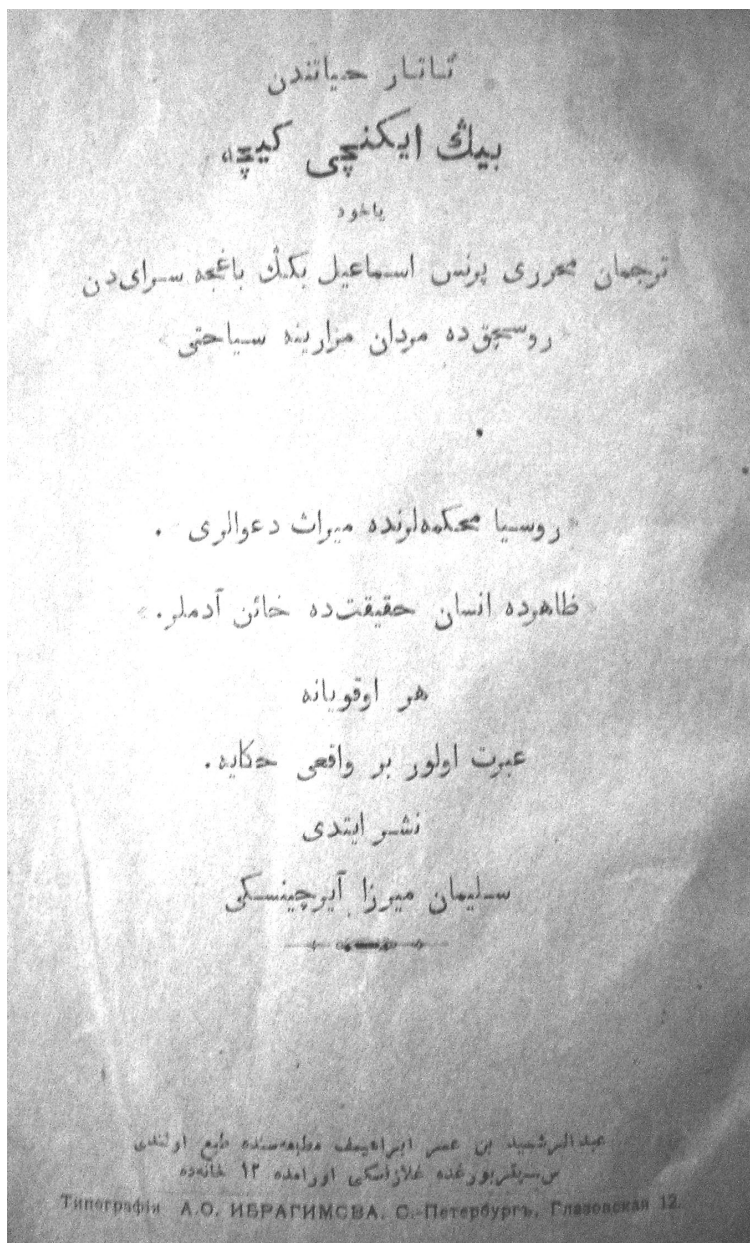 تاتار حياتندن
بيڭ ايكنچى كيچه،
ياخود
ترجمان محررى پرنس اسماعيل بكڭ باغچه سراى‌دن
« روسچق‌ده مردان مزارينه سياحتى »
« روسيا محكمه‌لرنده ميراث دعوالرى .
« ظاهرده انسان حقيقت‌ده خائن آدملر. »
هر اوقويانه
عبرت اولور بر واقعى حكايه.
نشر ايتدى
سليمان ميرزا آيرچينسكى
عبدالرشيد بن عمر ابراهيمف مطبعه‌سنده طبع اولندى
س-پطربورغده غلازفسكى اورامده ١٢ خانه‌ده
Типографія А.О. ИБРАГИМОВА. С.-Петербургъ, Глазовская 12.